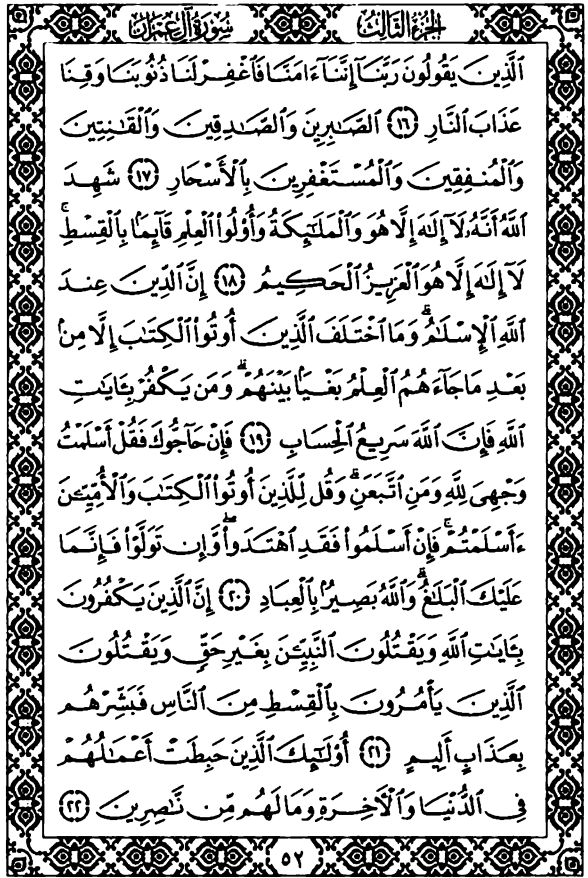 سورة آل عمران
الجزء الثالث
الَّذِينَ يَقُولُونَ رَبَّنَا إِنَّنَا ءَامَنَّا فَاغْفِرْ لَنَا ذُنُوبَنَا وَقِنَا
عَذَابَ النَّارِ ١٦ الصَّابِرِينَ وَالصَّادِقِينَ وَالْقَانِتِينَ
وَالْمُنفِقِينَ وَالْمُسْتَغْفِرِينَ بِالْأَسْحَارِ ١٧ شَهِدَ
اللَّهُ أَنَّهُ لَا إِلَٰهَ إِلَّا هُوَ وَالْمَلَائِكَةُ وَأُوْلُوا الْعِلْمِ قَائِمًا بِالْقِسْطِ ۚ
لَا إِلَٰهَ إِلَّا هُوَ الْعَزِيزُ الْحَكِيمُ ١٨ إِنَّ الدِّينَ عِندَ
اللَّهِ الْإِسْلَامُ ۗ وَمَا اخْتَلَفَ الَّذِينَ أُوتُوا الْكِتَابَ إِلَّا مِن
بَعْدِ مَا جَاءَهُمُ الْعِلْمُ بَغْيًا بَيْنَهُمْ ۗ وَمَن يَكْفُرْ بِـَٔايَاتِ
اللَّهِ فَإِنَّ اللَّهَ سَرِيعُ الْحِسَابِ ١٩ فَإِنْ حَاجُّوكَ فَقُلْ أَسْلَمْتُ
وَجْهِيَ لِلَّهِ وَمَنِ اتَّبَعَنِ ۗ وَقُل لِّلَّذِينَ أُوتُوا الْكِتَابَ وَالْأُمِّيِّـنَ
ءَأَسْلَمْتُمْ ۚ فَإِنْ أَسْلَمُوا فَقَدِ اهْتَدَوا ۖ وَّإِن تَوَلَّوْا فَإِنَّمَا
عَلَيْكَ الْبَلَاغُ ۗ وَاللَّهُ بَصِيرٌ بِالْعِبَادِ ٢٠ إِنَّ الَّذِينَ يَكْفُرُونَ
بِـَٔايَاتِ اللَّهِ وَيَقْتُلُونَ النَّبِيِّـنَ بِغَيْرِ حَقٍّ وَيَقْتُلُونَ
الَّذِينَ يَأْمُرُونَ بِالْقِسْطِ مِنَ النَّاسِ فَبَشِّرْهُم
بِعَذَابٍ أَلِيمٍ ٢١ أُوْلَٰئِكَ الَّذِينَ حَبِطَتْ أَعْمَالُهُمْ
فِي الدُّنْيَا وَالْآخِرَةِ وَمَا لَهُم مِّن نَّاصِرِينَ ٢٢
٥٢